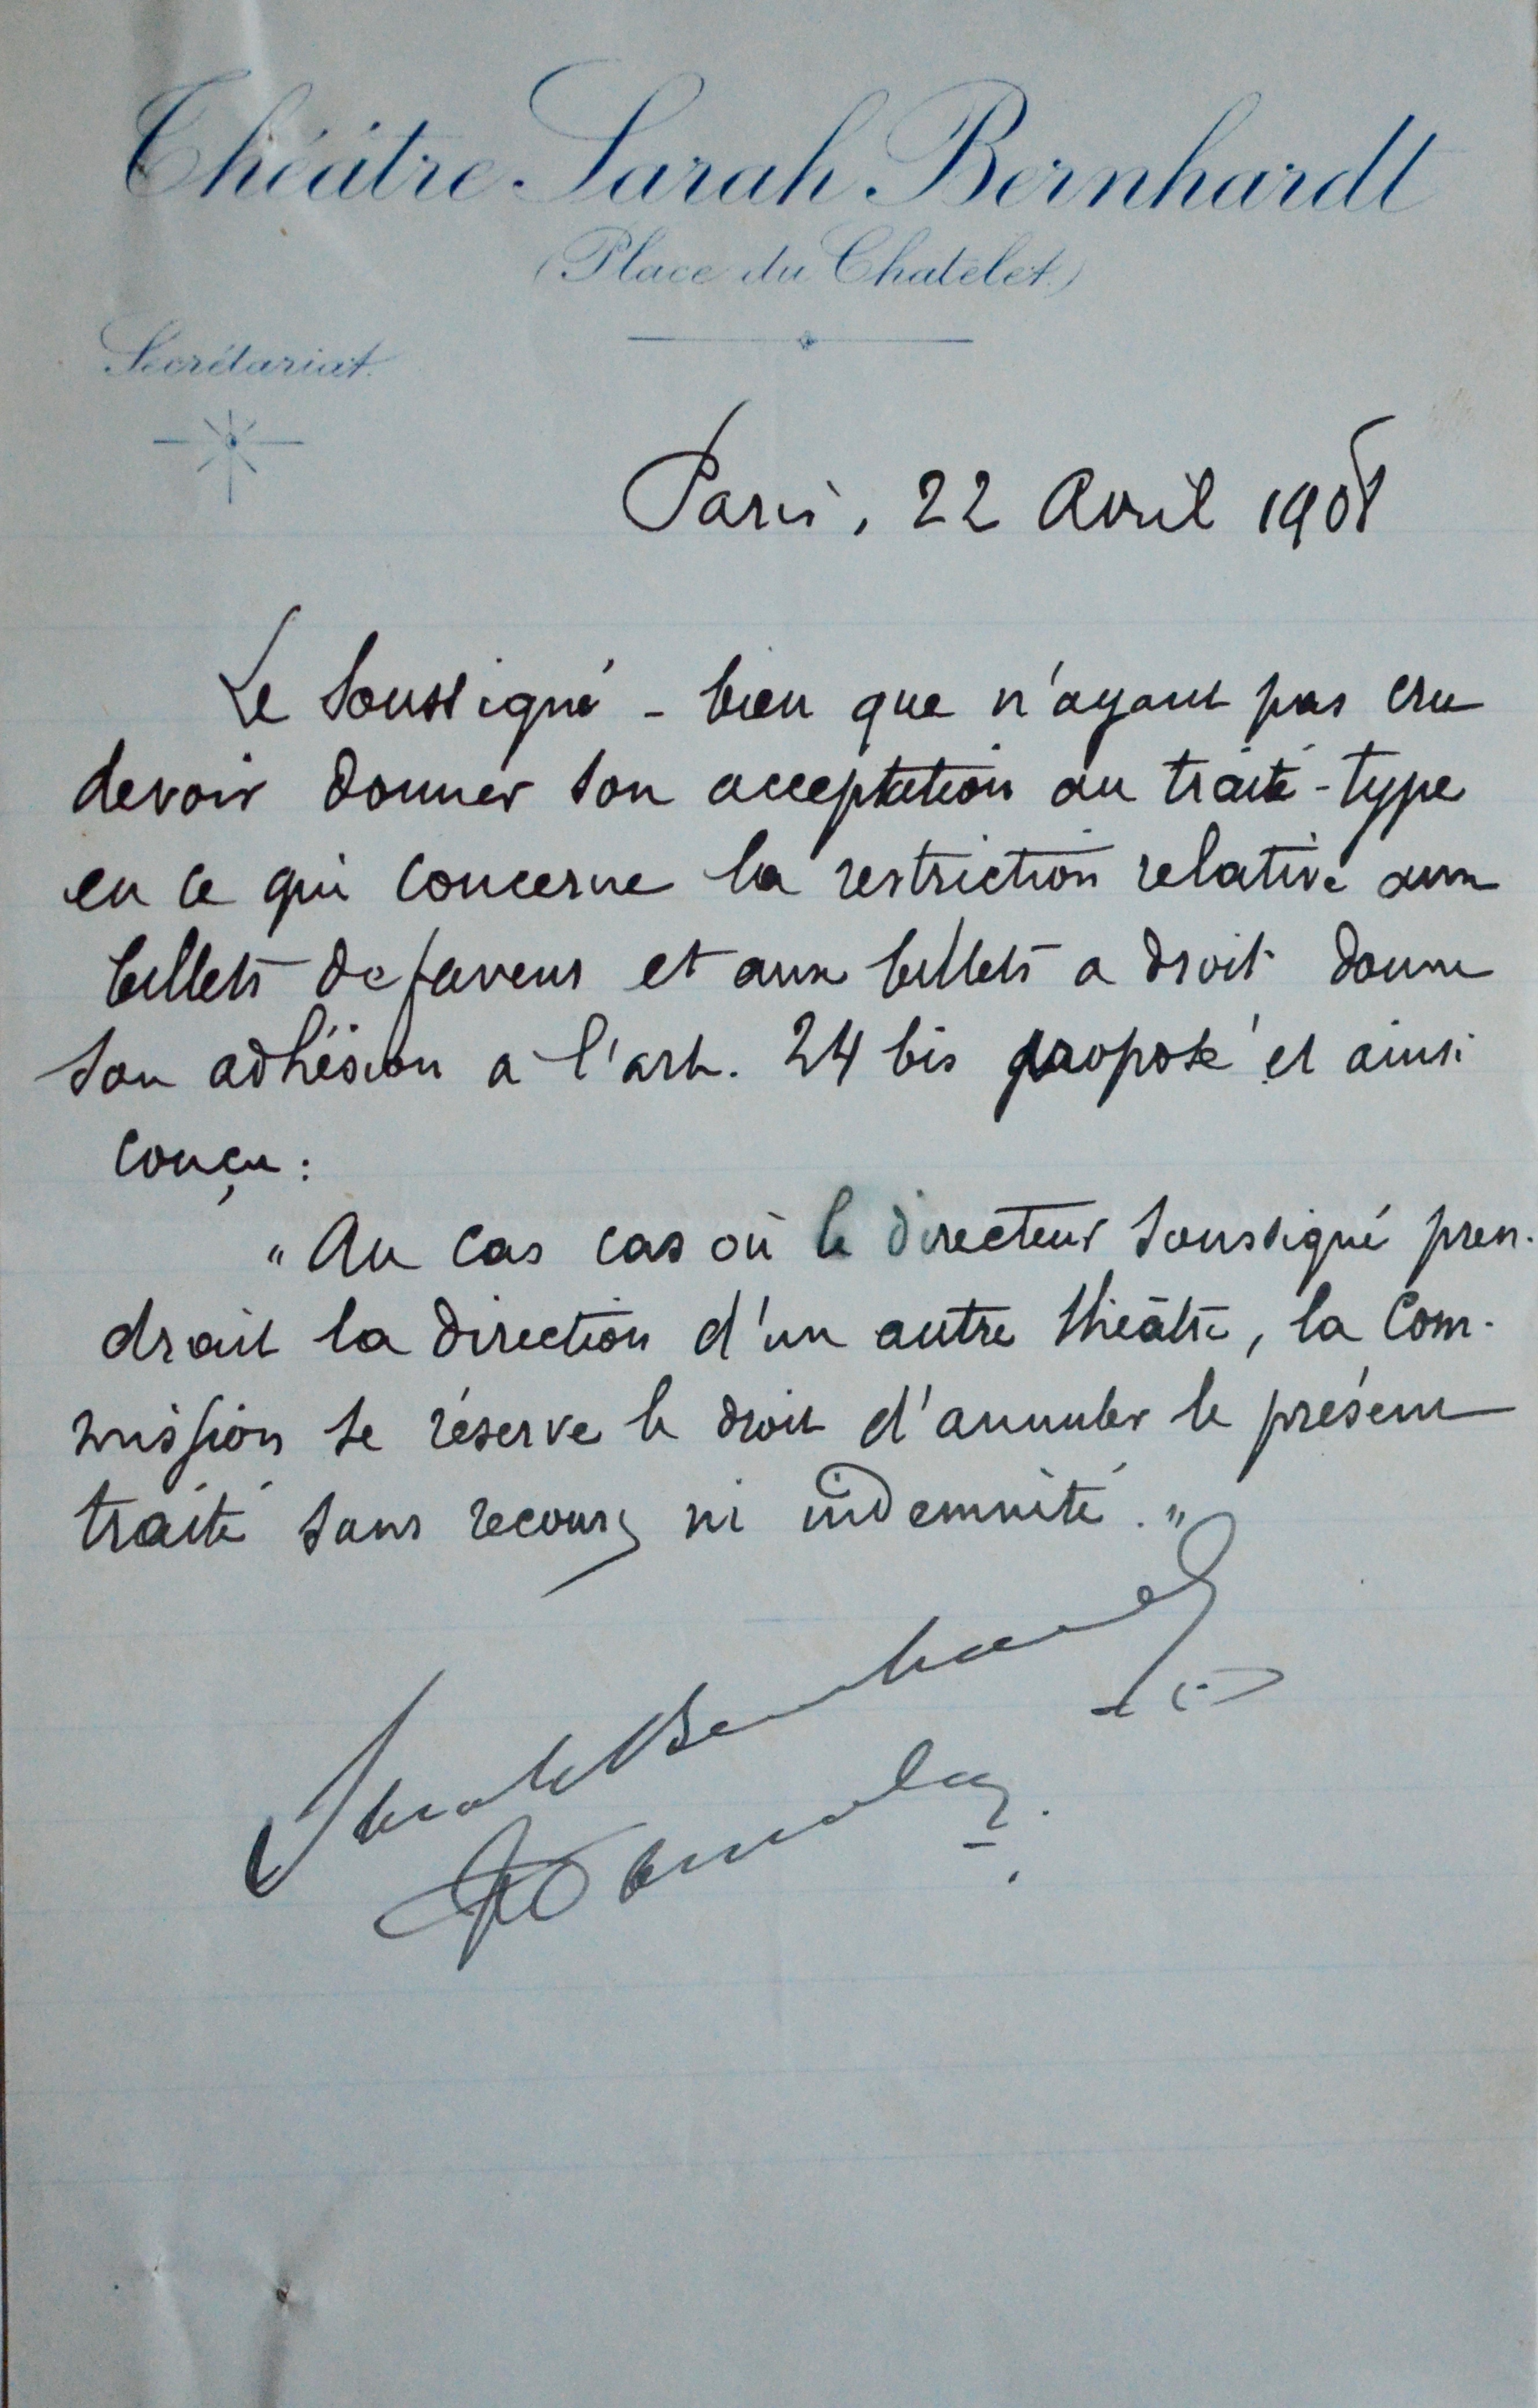 Théâtre Sarah Bernhardt
(Place du Chatelet)
Secrétariat.
Paris, 22 Avril 1908
Le Soussigné - bien que n'ayant pas cru
devoir donner son acceptation au traité-type
en ce qui concerne la restriction relative aux
billets de faveur et aux billets a droit donne
son adhésion a l'art. 24 bis proposé et ainsi
conçu :
"Au cas cas où le directeur soussigné pren-
drait la direction d'un autre théâtre, la Com-
mission se réserve le droit d'annuler le présent
traité sans recours ni indemnité."
Sarah Bernhardt